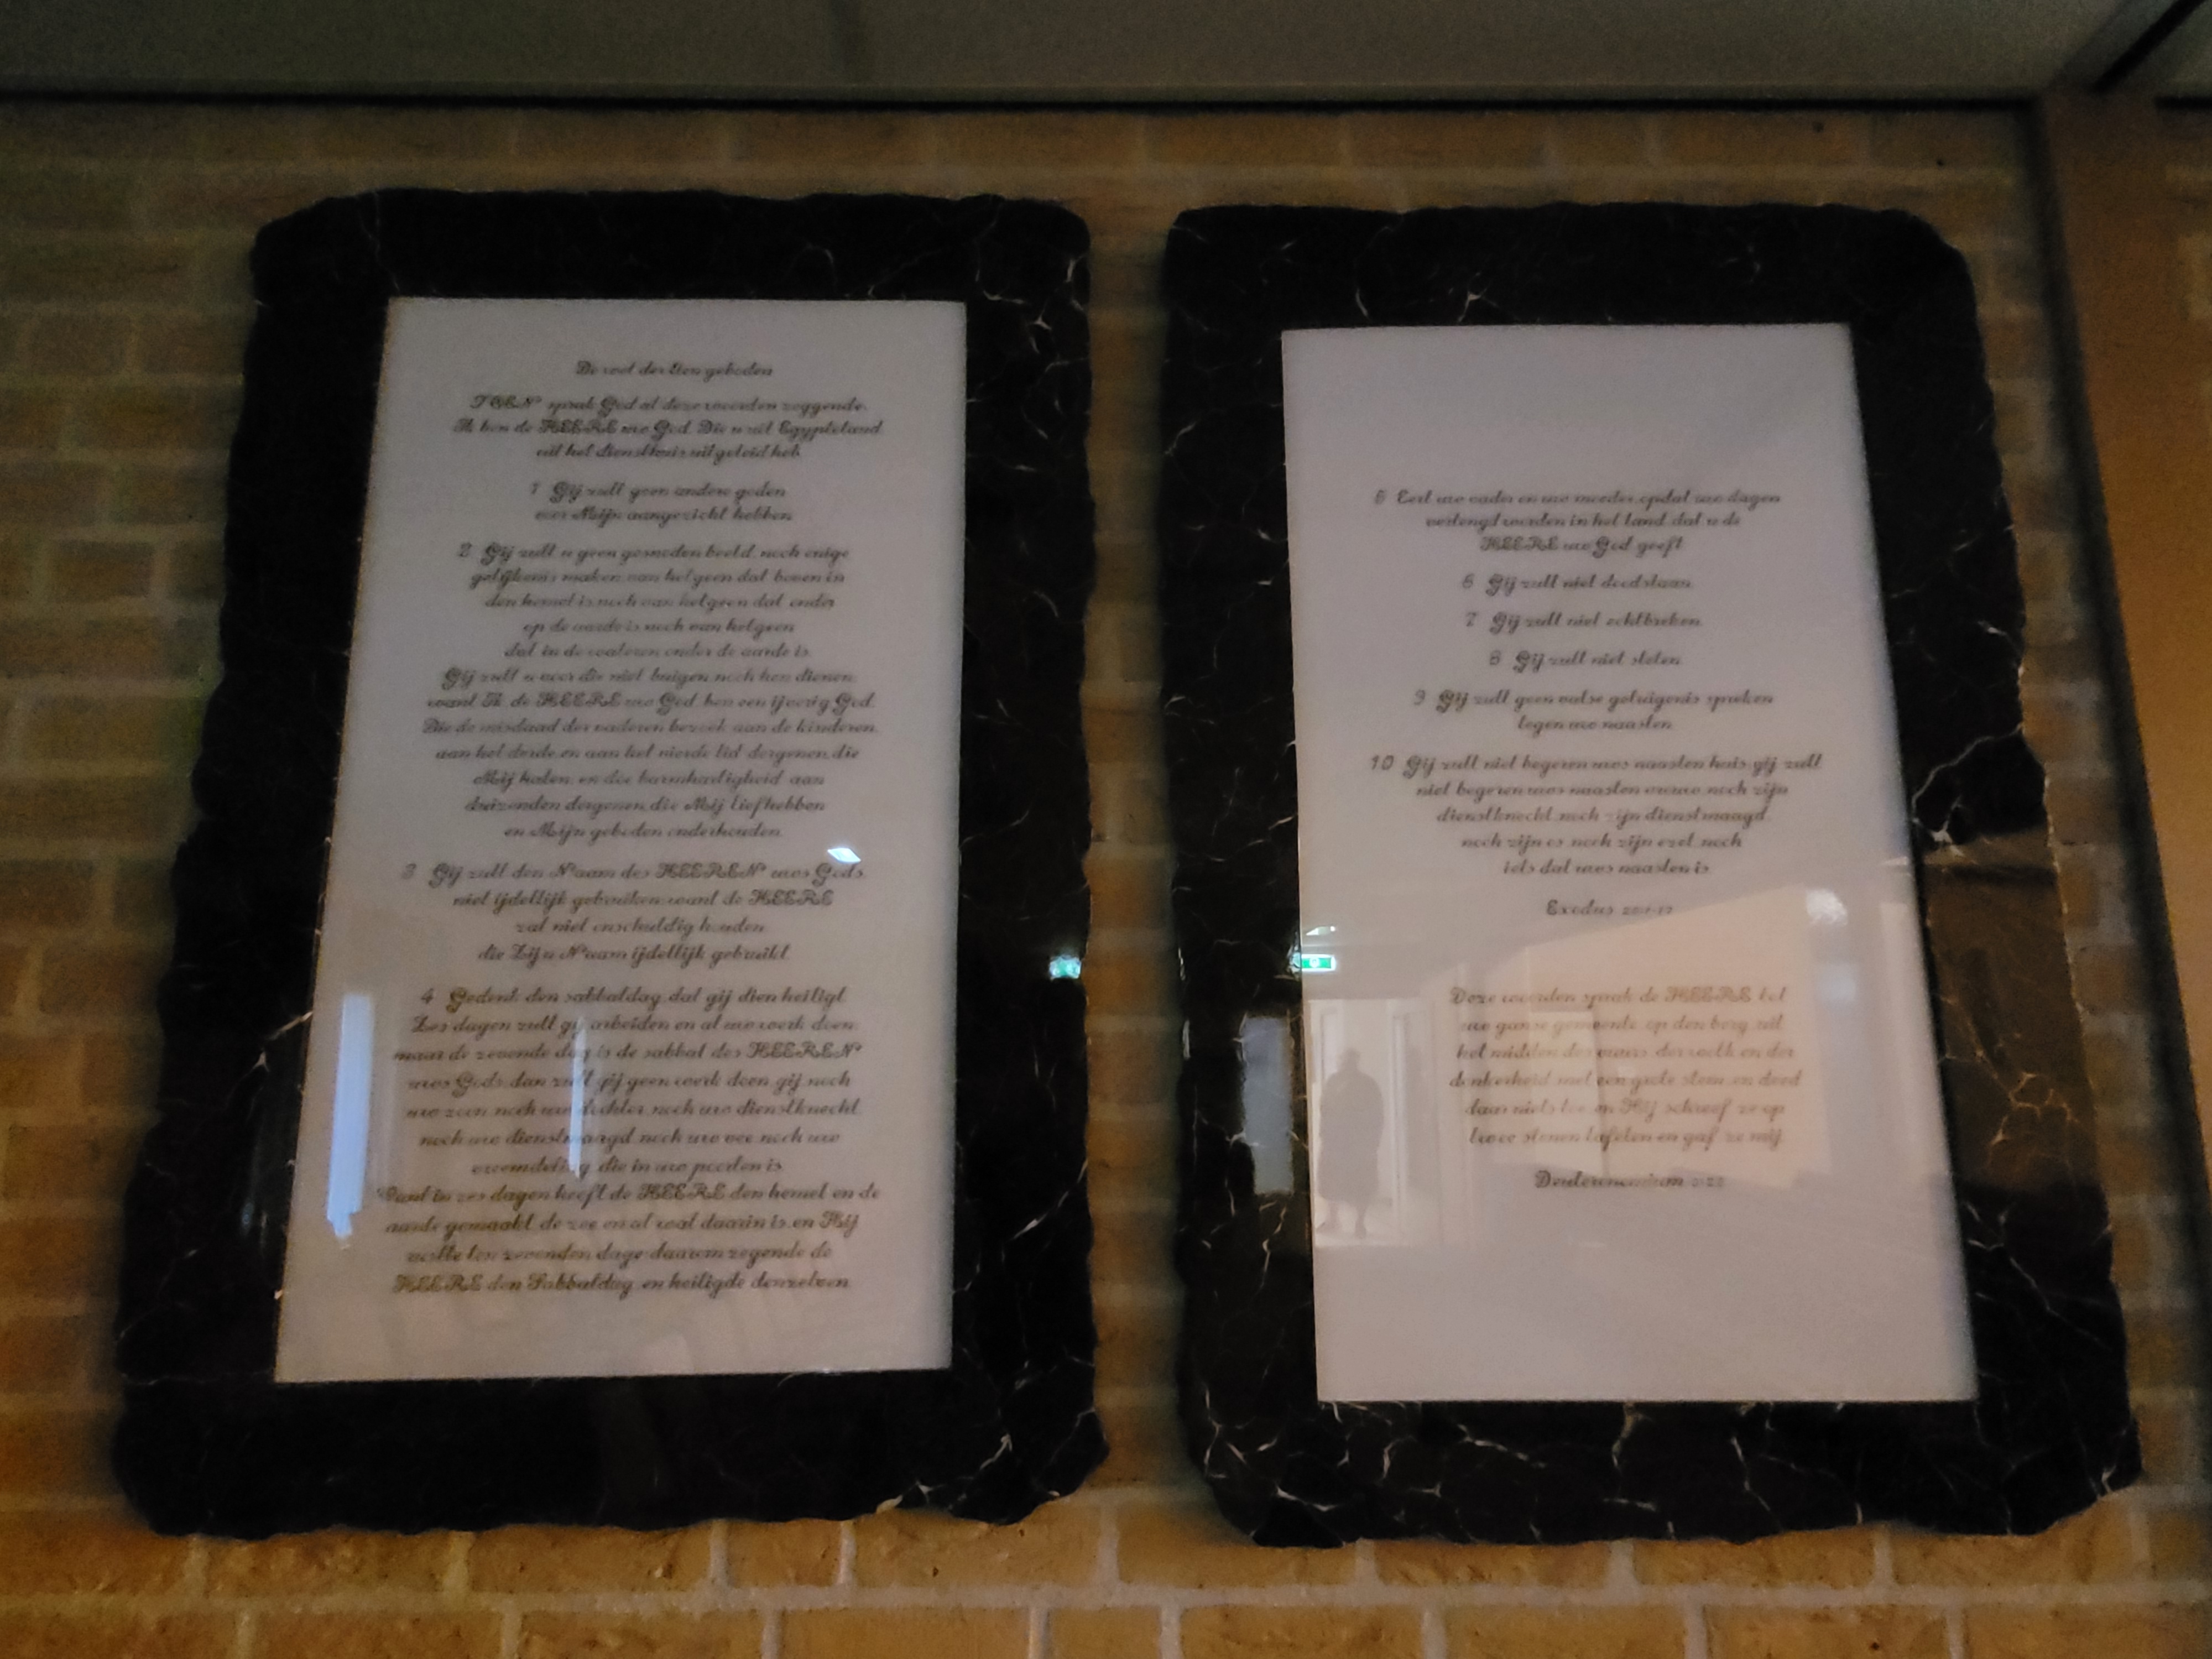 De wet der tien geboden
TOEN sprak God al deze woorden zeggende
Ik ben de HEERE uw God Die u uit Egypteland
uit het diensthuis uitgeleid heb
1 Gij zult geen andere goden
voor Mijn aangezicht hebben
2 Gij zult u geen gesneden beeld noch enige
gelijkenis maken van hetgeen dat boven in
den hemel is noch van hetgeen dat onder
op de aarde is noch van hetgeen
dat in de wateren onder de aarde is
Gij zult u voor die niet buigen noch hen dienen
want Ik de HEERE uw God ben een ijverig God
Die de misdaad der vaderen bezoek aan de kinderen
aan het derde en aan het vierde lid dergenen die
Mij haten en doe barmhartigheid aan
duizenden dergenen die Mij liefhebben
en Mijn geboden onderhouden
3 Gij zult den Naam des HEEREN uws Gods
niet ijdellijk gebruiken want de HEERE
zal niet onschuldig houden
die Zijn Naam ijdellijk gebruikt
4 Gedenk den sabbatdag dat gij dien heiligt
Zes dagen zult gij arbeiden en al uw werk doen
maar de zevende dag is de sabbat des HEEREN
uws Gods dan zult gij geen werk doen gij noch
uw zoon noch uw dochter noch uw dienstknecht
noch uw dienstmaagd noch uw vee noch uw
vreemdeling die in uw poorten is
Want in zes dagen heeft de HEERE den hemel en de
aarde gemaakt de zee en al wat daarin is en Hij
rustte ten zevenden dage daarom zegende de
HEERE den Sabbatdag en heiligde denzelven
5 Eert uw vader en uw moeder opdat uw dagen
verlengd worden in het land dat u de
HEERE uw God geeft
6 Gij zult niet doodslaan
7 Gij zult niet echtbreken
8 Gij zult niet stelen
9 Gij zult geen valse getuigenis spreken
tegen uw naasten
10 Gij zult niet begeren uws naasten huis gij zult
niet begeren uws naasten vrouw noch zijn
dienstknecht noch zijn dienstmaagd
noch zijn os noch zijn ezel noch
iets dat uws naasten is
Exodus 20:1-17
Deze woorden sprak de HEERE tot
uw ganse gemeente op den berg uit
het midden des vuurs der wolk en der
donkerheid met een grote stem en deed
daar niets toe en Hij schreef ze op
twee stenen tafelen en gaf ze mij
Deuteronomium 5:22